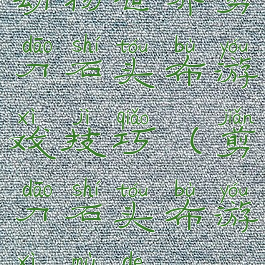 dāo shí tóu bù yóu
刀石头布游
xì jì qiǎo jiǎn
戏技巧（剪
dāo shí tóu bù yóu
刀石头布游